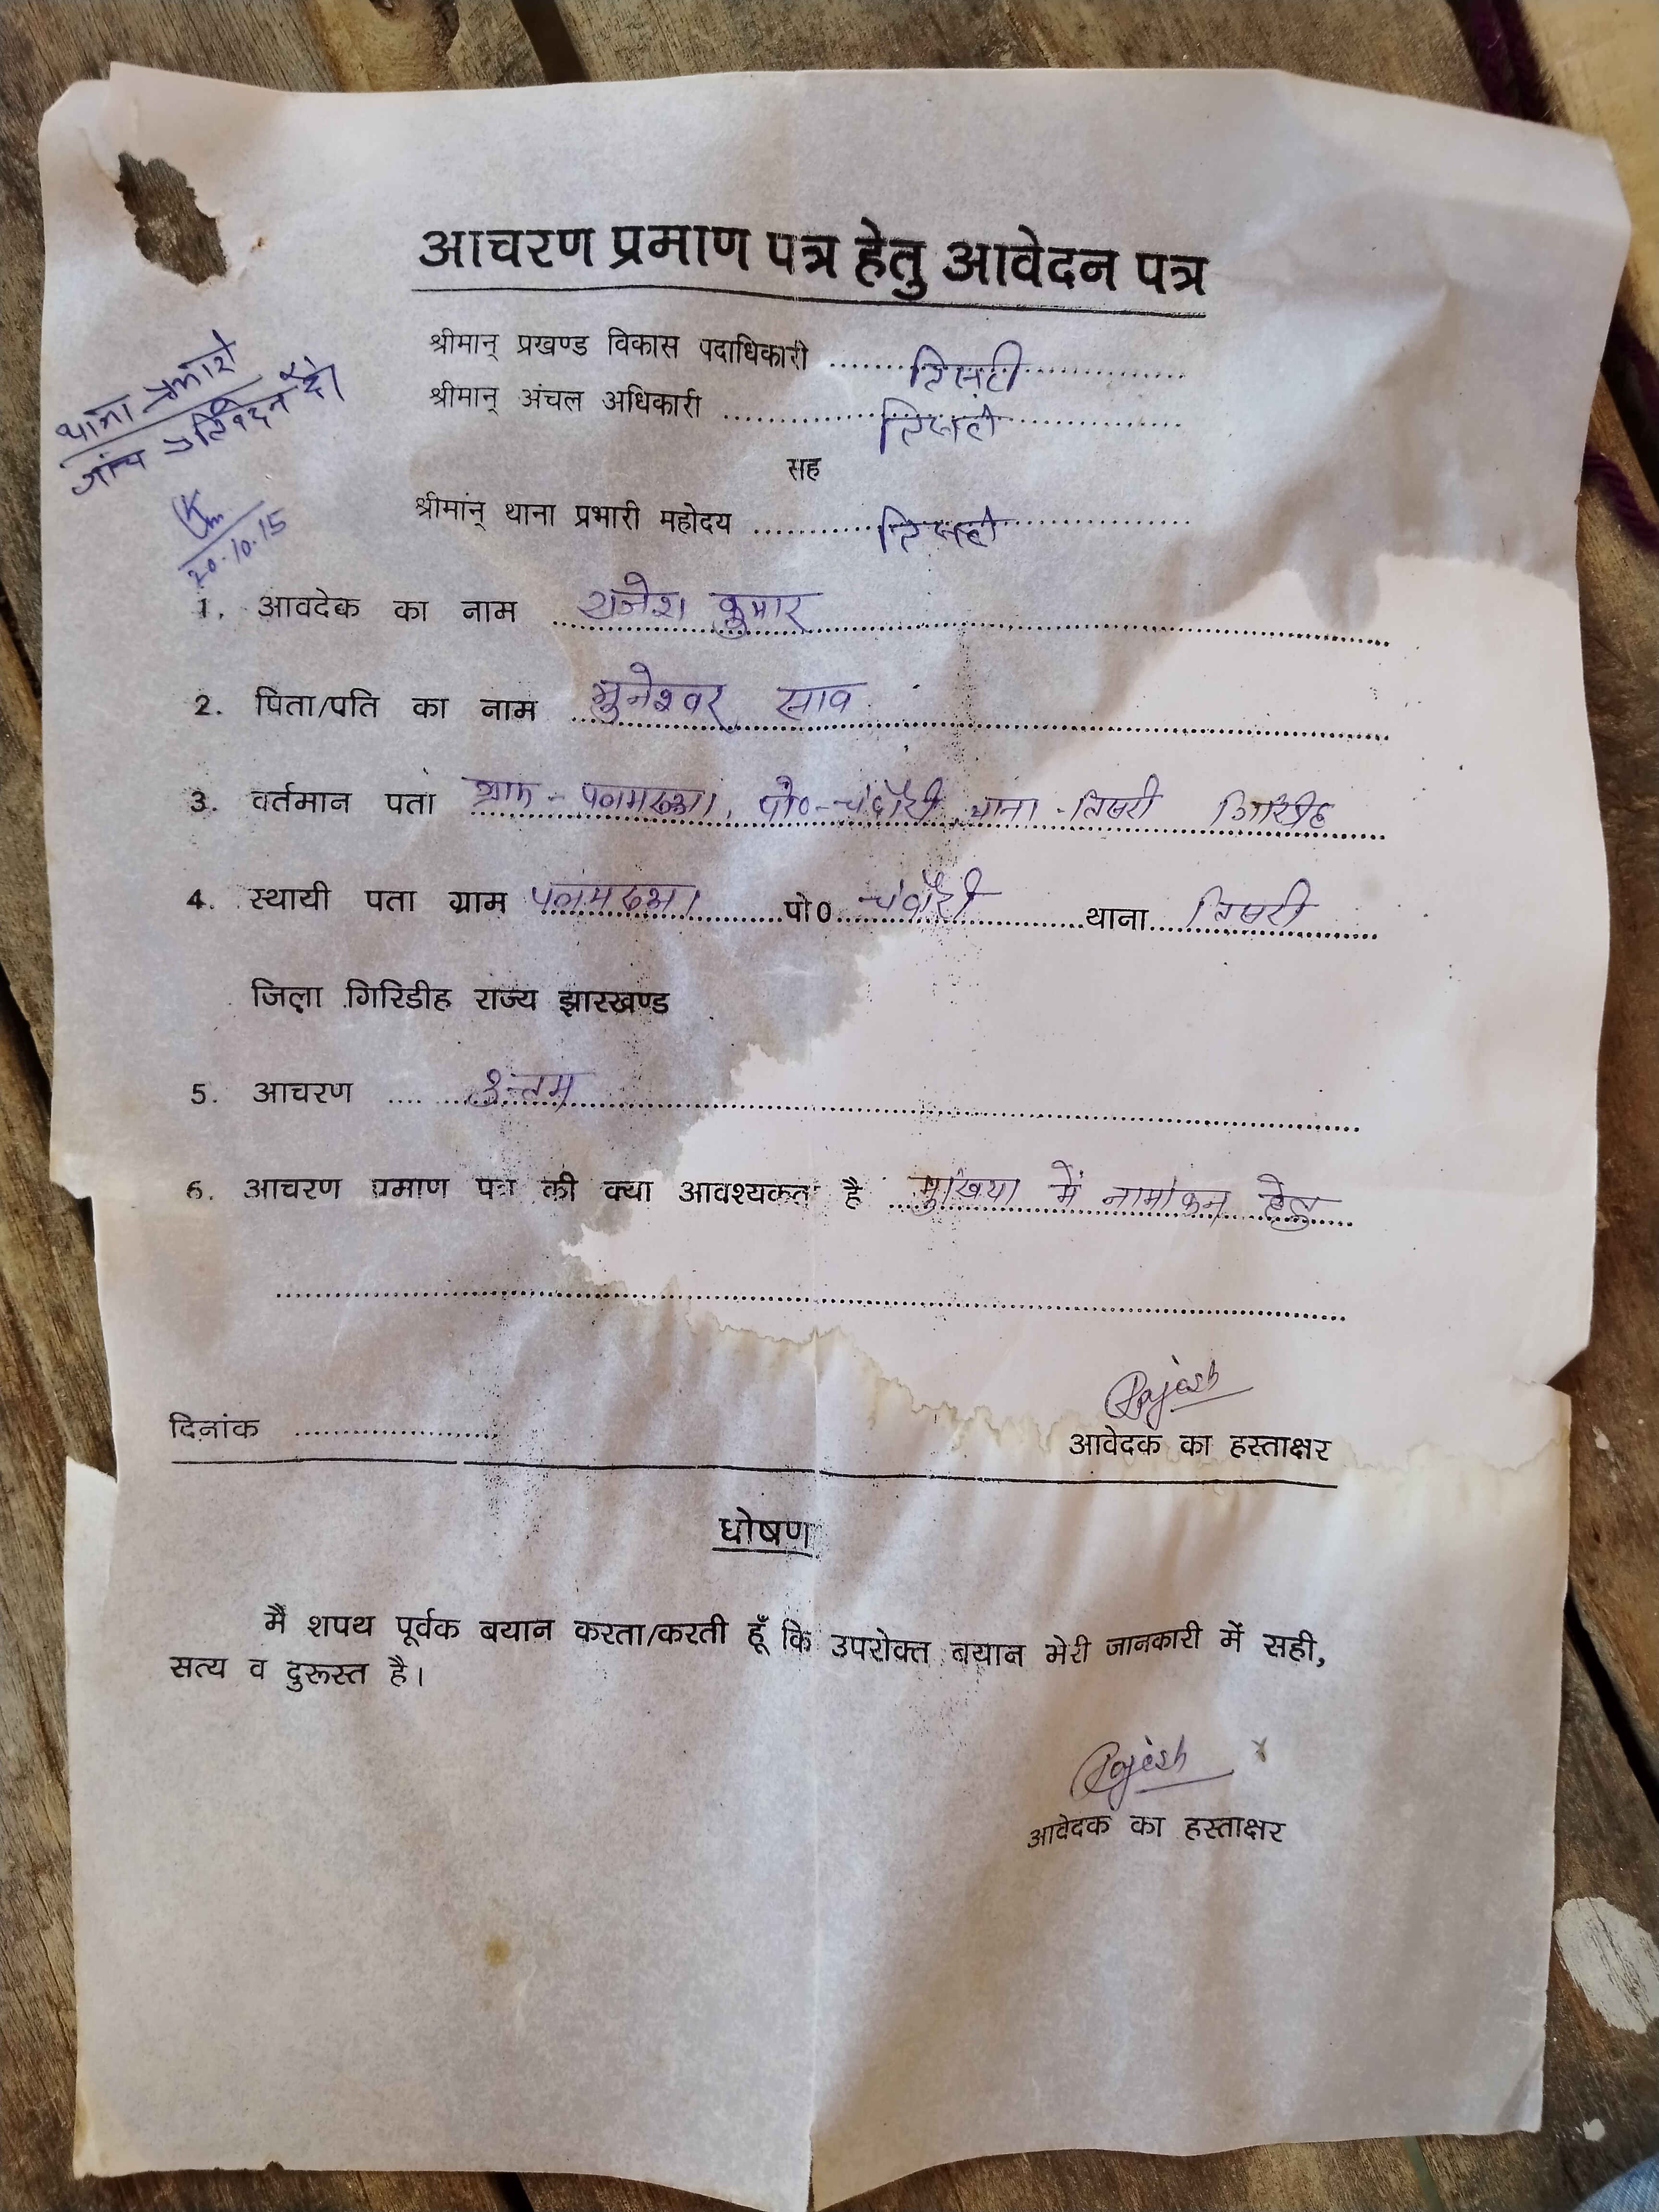 आचरण प्रमाण पत्र हेतु आवेदन पत्र
श्रीमान् प्रखण्ड विकास पदाधिकारी .................. तिसरी ..................
श्रीमान् अंचल अधिकारी .................. तिसरी ..................
सह
श्रीमान् थाना प्रभारी महोदय .................. तिसरी ..................
थाना प्रभारी
जांच प्रतिवेदन दें।
20.10.15
1. आवदेक का नाम राजेश कुमार
2. पिता/पति का नाम भुनेश्वर साव
3. वर्तमान पता ग्राम - पो0 - चंदौरी थाना - तिसरी गिरिडीह
4. स्थायी पता ग्राम पो0 चंदौरी थाना तिसरी
जिला गिरिडीह राज्य झारखण्ड
5. आचरण .... उत्तम
6. आचरण प्रमाण पत्र की क्या आवश्यकत है मुखिया में नामांकन हेतु
दिनांक ..................
Rajesh
आवेदक का हस्ताक्षर
घोषण
मैं शपथ पूर्वक बयान करता/करती हूँ कि उपरोक्त बयान मेरी जानकारी में सही,
सत्य व दुरूस्त है।
Rajesh x
आवेदक का हस्ताक्षर